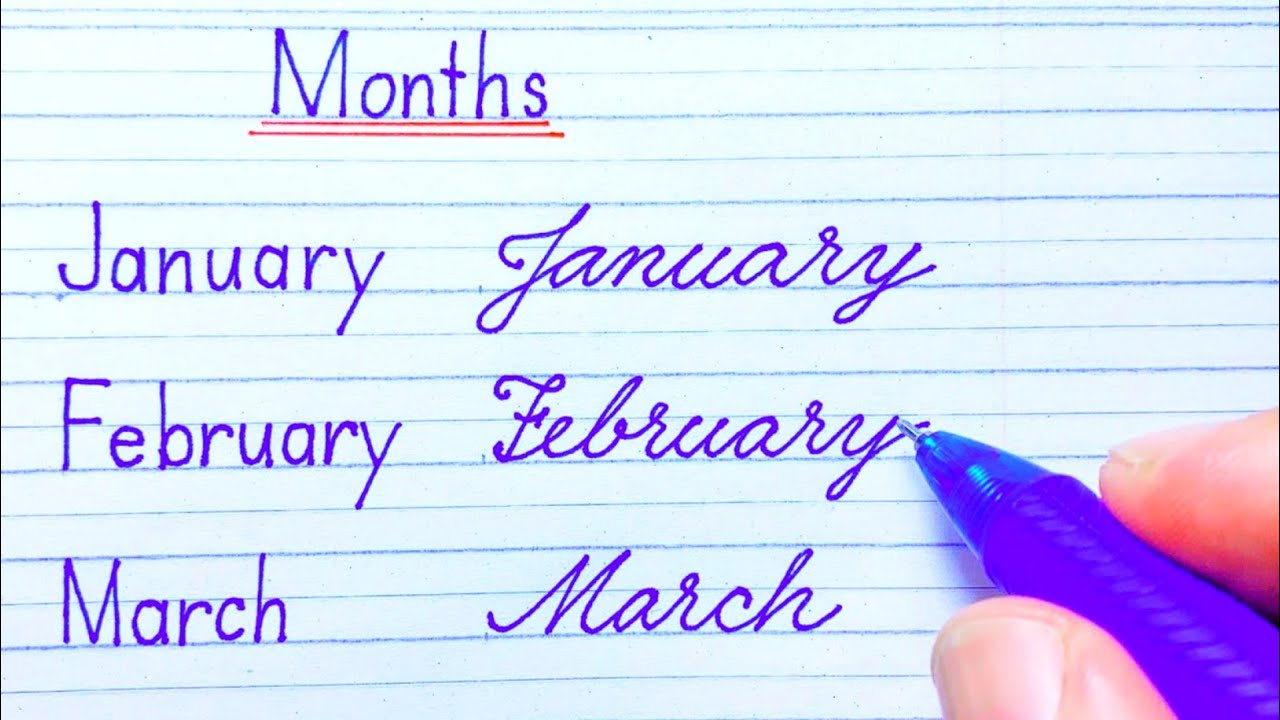 Months
January January
February February
March March